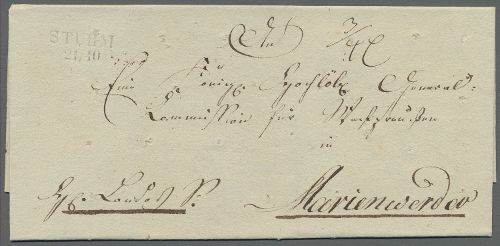 STUHM
21/10
An
Eine Königl. Hochlöbl. General-
Kommission für Westpreußen
in
Marienwerder